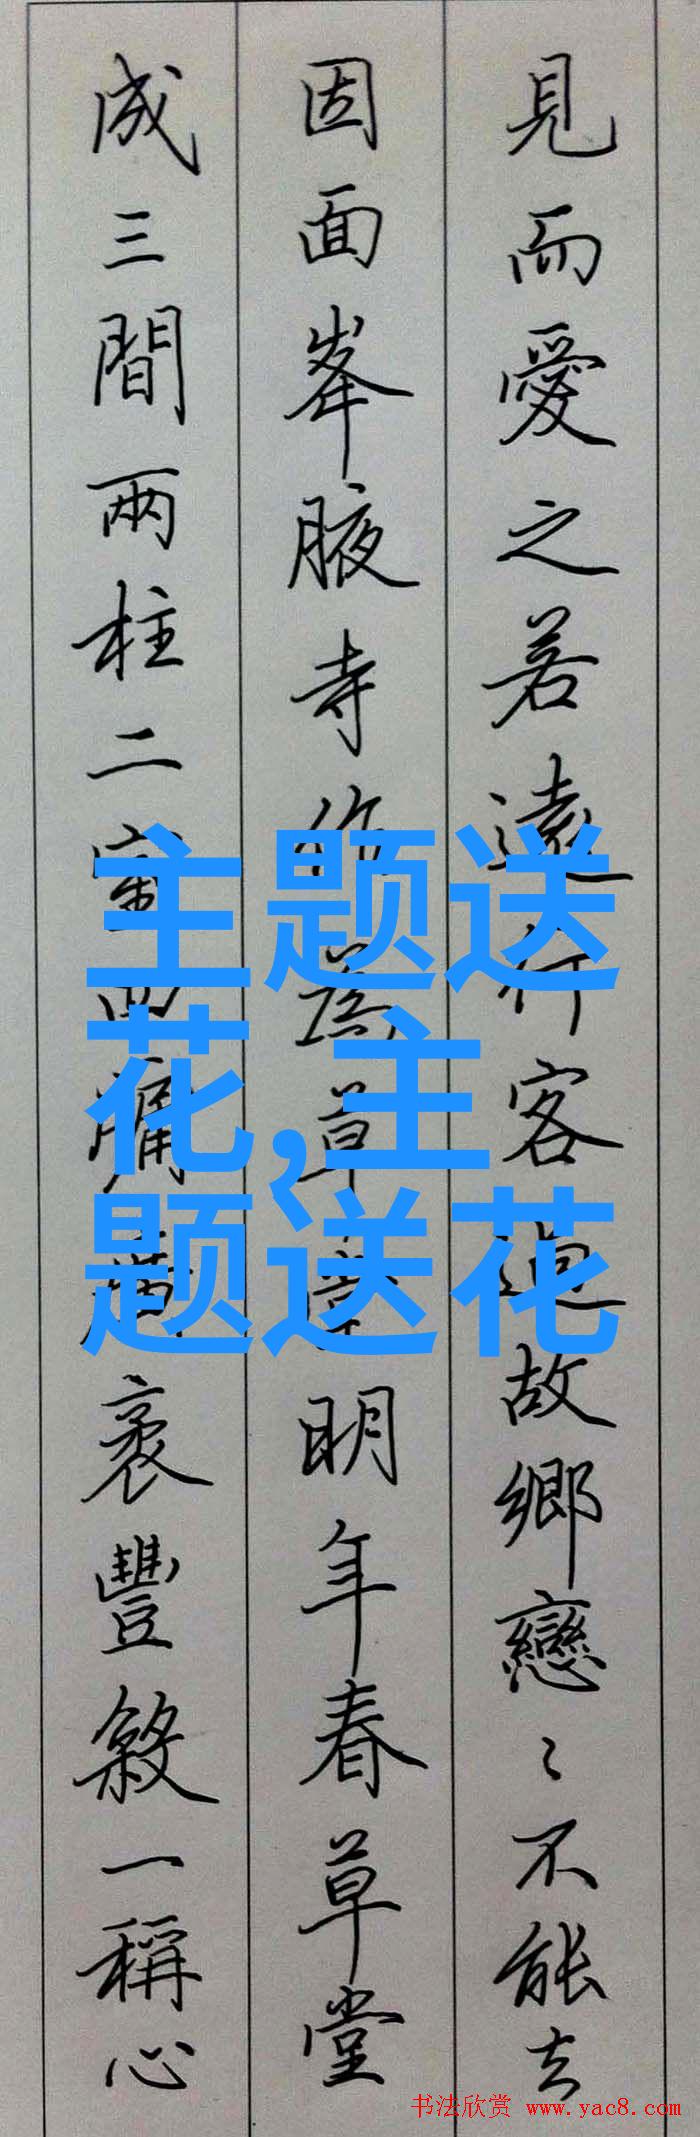 見而愛之若遠行客過故鄉戀〻不能去
因面峯腋寺作為草堂明年春草堂
成三間兩柱二室四牖廣袤豐殺一稱心
主题送
花,主
题送花
书法欣赏 www.yac8.com